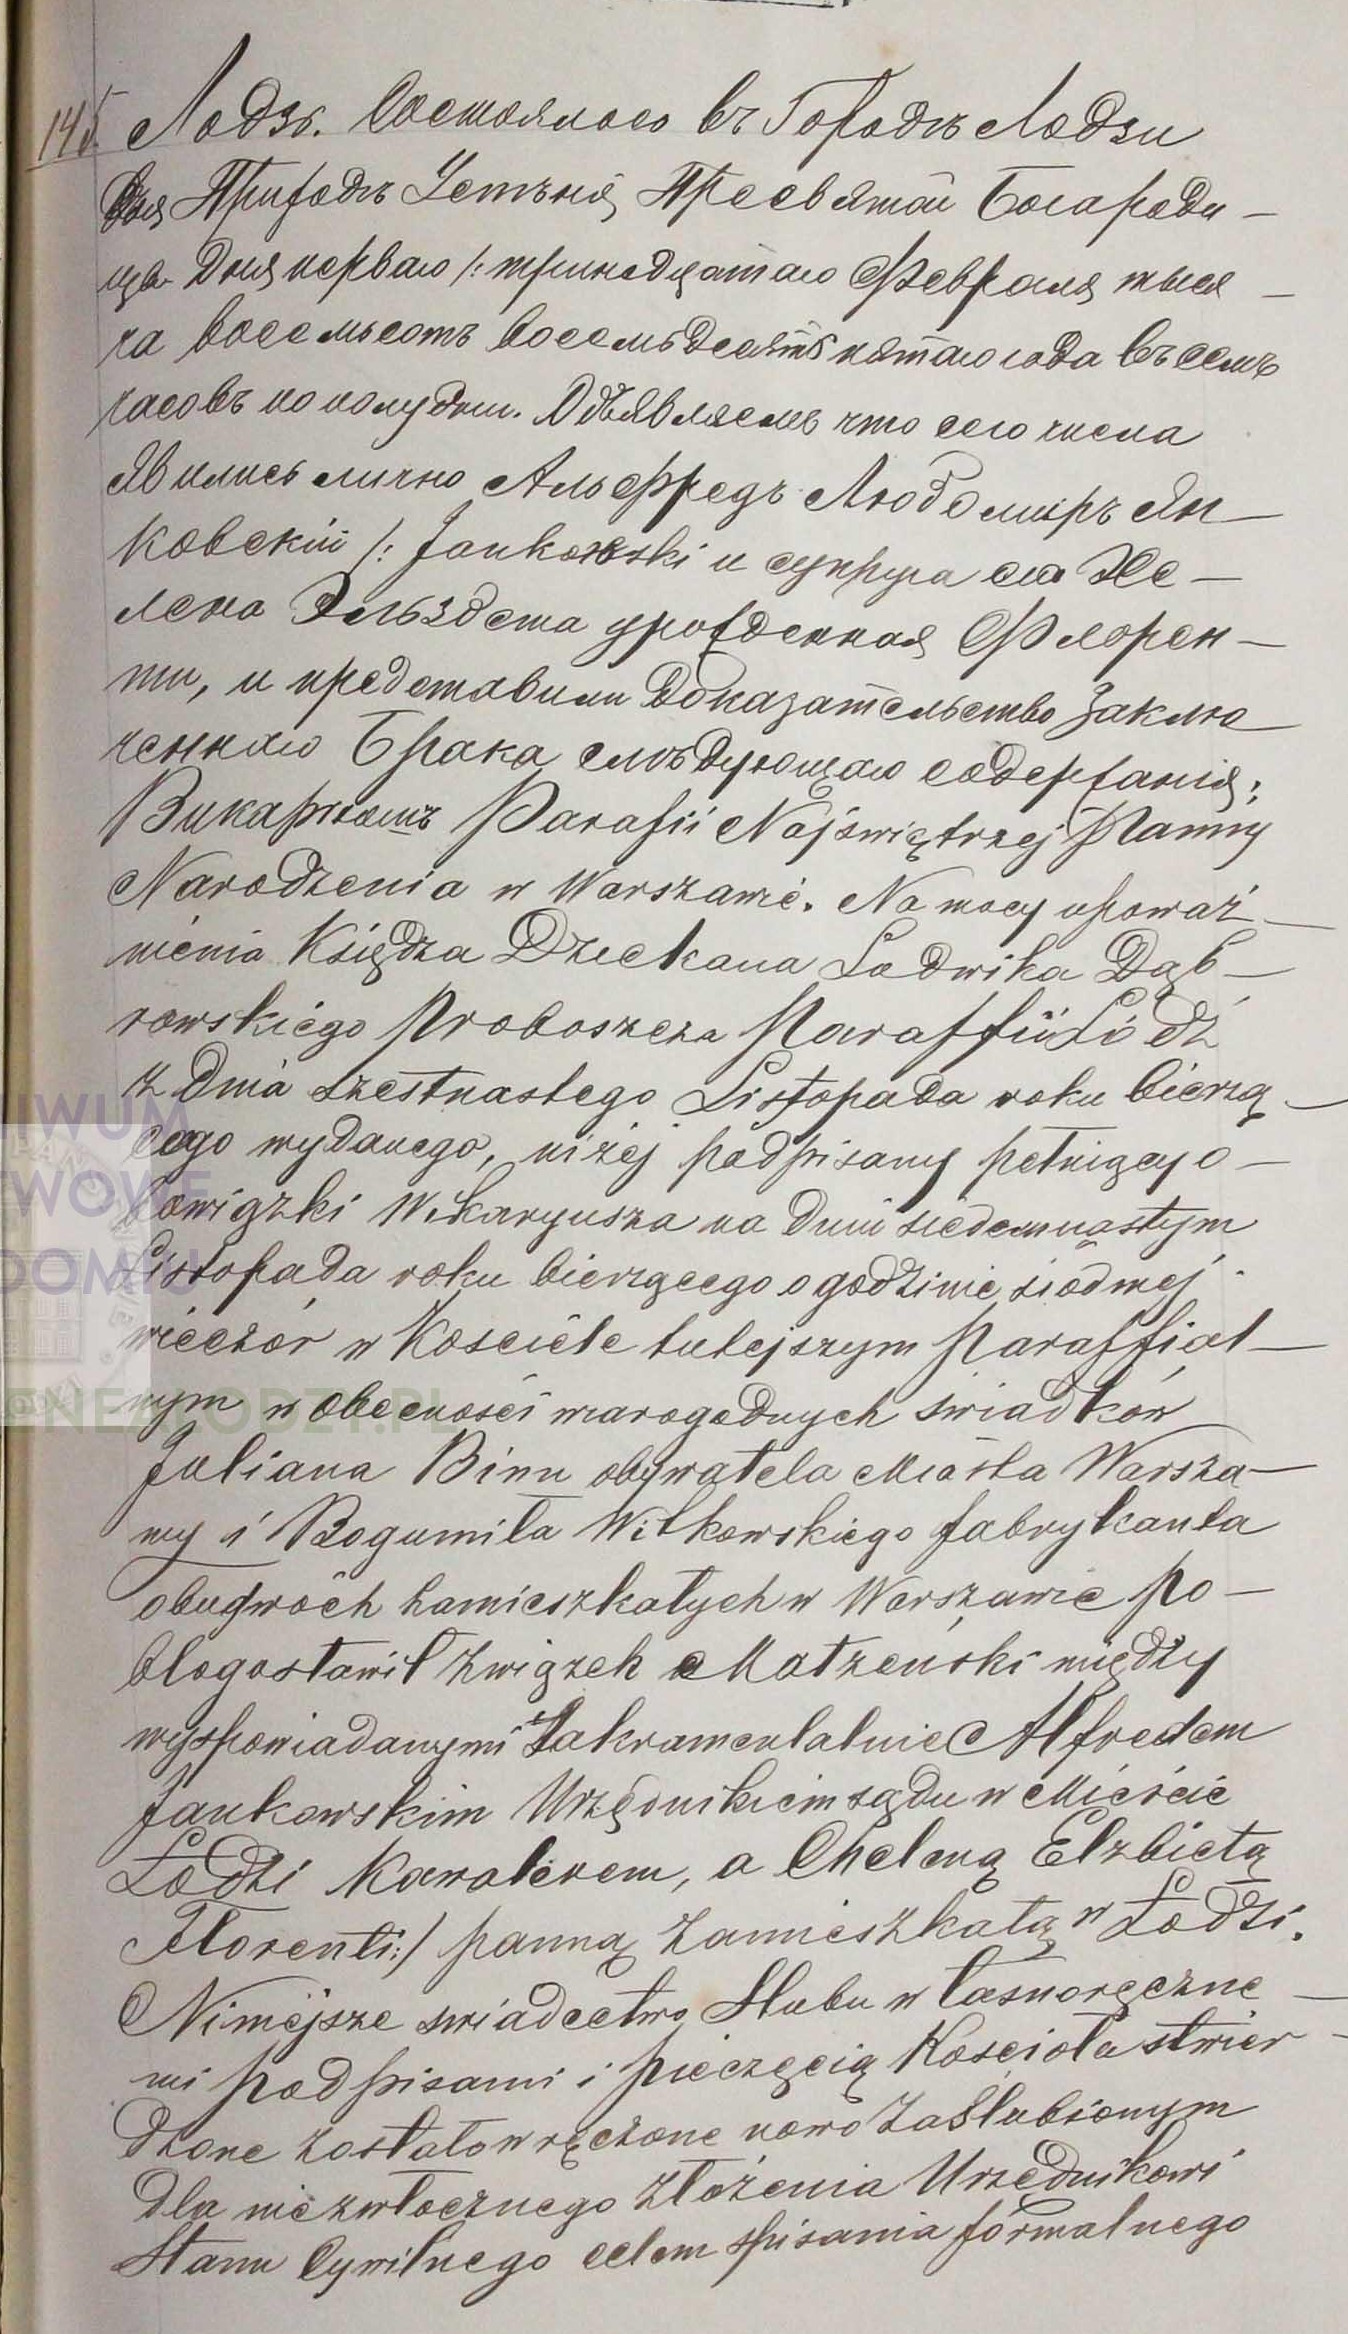 145.
Лодзь. Состоялось въ Городѣ Лодзи
Приходѣ Успѣнія Пресвятой Богороди-
цы Дня перваго /: тринадцатаго Февраля тыся-
ча восемьсотъ восемьдесятъ пятаго года въ семь
часовъ по полудни. Объявляемъ что сего числа
явились лично Альфредъ Любомиръ Ян-
ковскій /: Jankowski и супруга его Хе-
лена Эльзбета урожденная Флорен-
ти, и представили доказательство заклю
ченнаго Брака слѣдующаго содержанія:
Викаріюмъ Parafii Najświętrzej Panny
Narodzenia w Warszawie. Na mocy upoważ-
nienia Księdza Dziekana Ludwika Dąb-
rowskiego Proboszcza Paraffii Łódź
z Dnia szestnastego Listopada roku bierzą-
cego wydanego, niżej podpisany pełniący o-
bowiązki Wikaryusza na Dniu siedemnastym
Listopada roku bierzącego o godzinie siódmej
wieczór w Kosciele tutejszym Paraffial-
nym w obecności wiarogodnych świadków
Juliana Binu obywatela Miasta Warsza-
wy i Bogumiła Witkowskiego fabrykanta
obudwóch zamieszkałych w Warszawie po-
błogosławił związek Małżeński między
wyspowiadanymi Sakramentalnie Alfredem
Jankowskim Urzędnikiem sądu w Mieście
Łodzi Kawalerem, a Cheleną Elzbietą
Florenti:/ panną zamieszkałą w Łodzi.
Niniejsze swiadectwo Slubu własnoręczne-
mi podpisami i pieczęcią Kościoła stwier-
dzone zostało wręczone nowo zaslubionym
dla niezwłocznego złożenia Urzędnikowi
Stanu Cywilnego celem spisania formalnego
ARCHIWUM
PAŃSTWOWE
GENEALODZY.PL